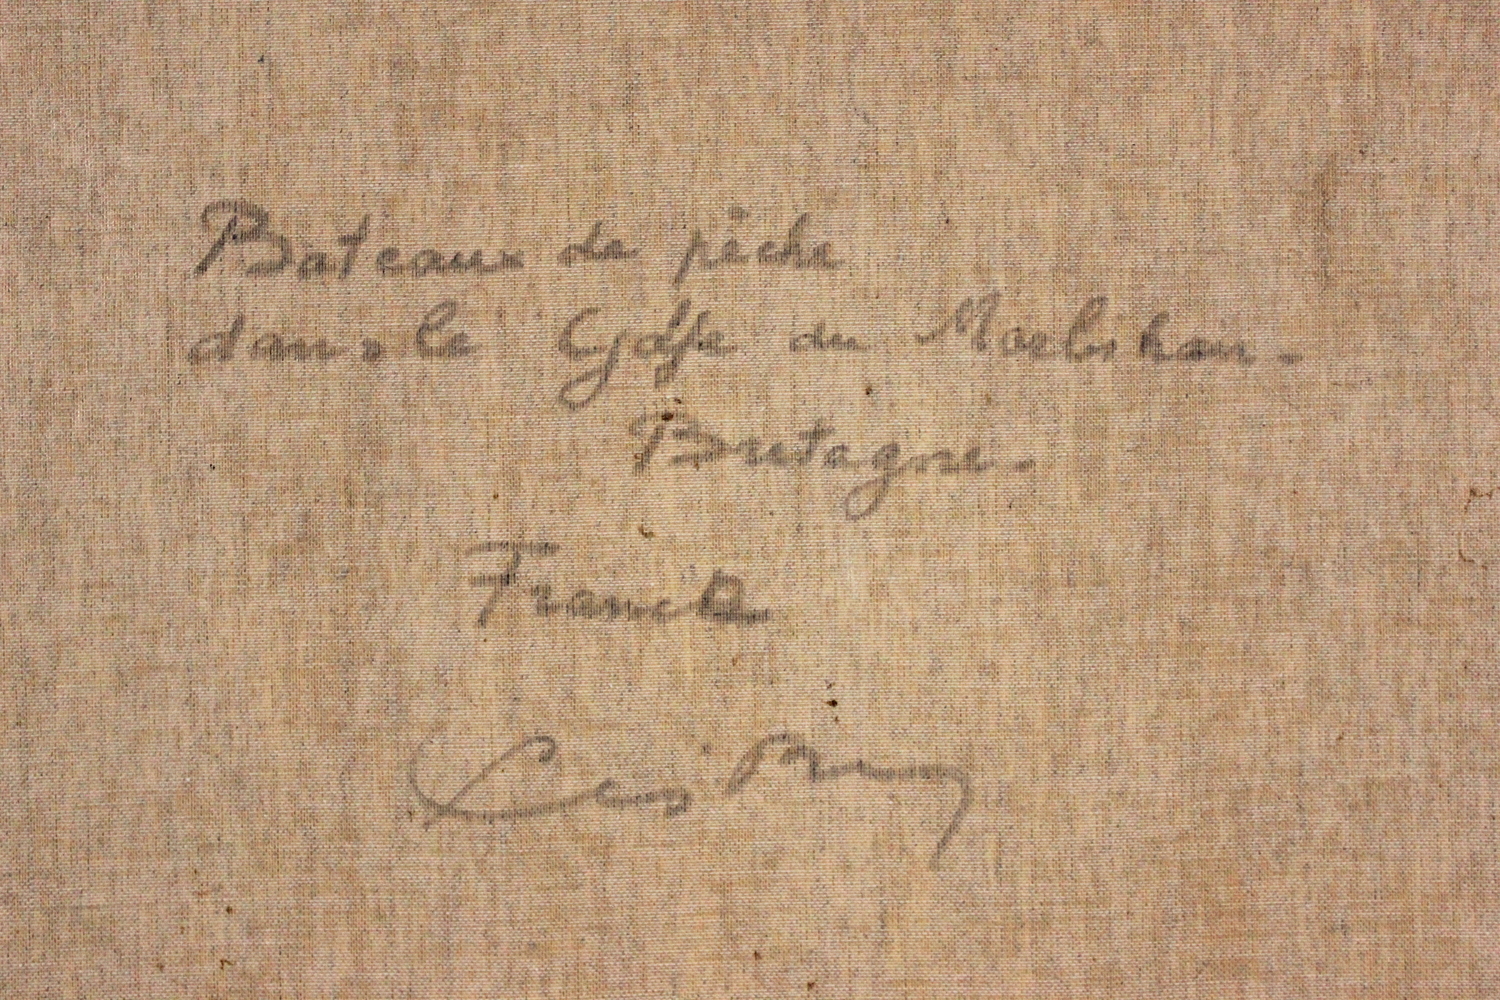 Bateaux de pêche
dans le Golfe du Morbihan.
Bretagne.
Franck